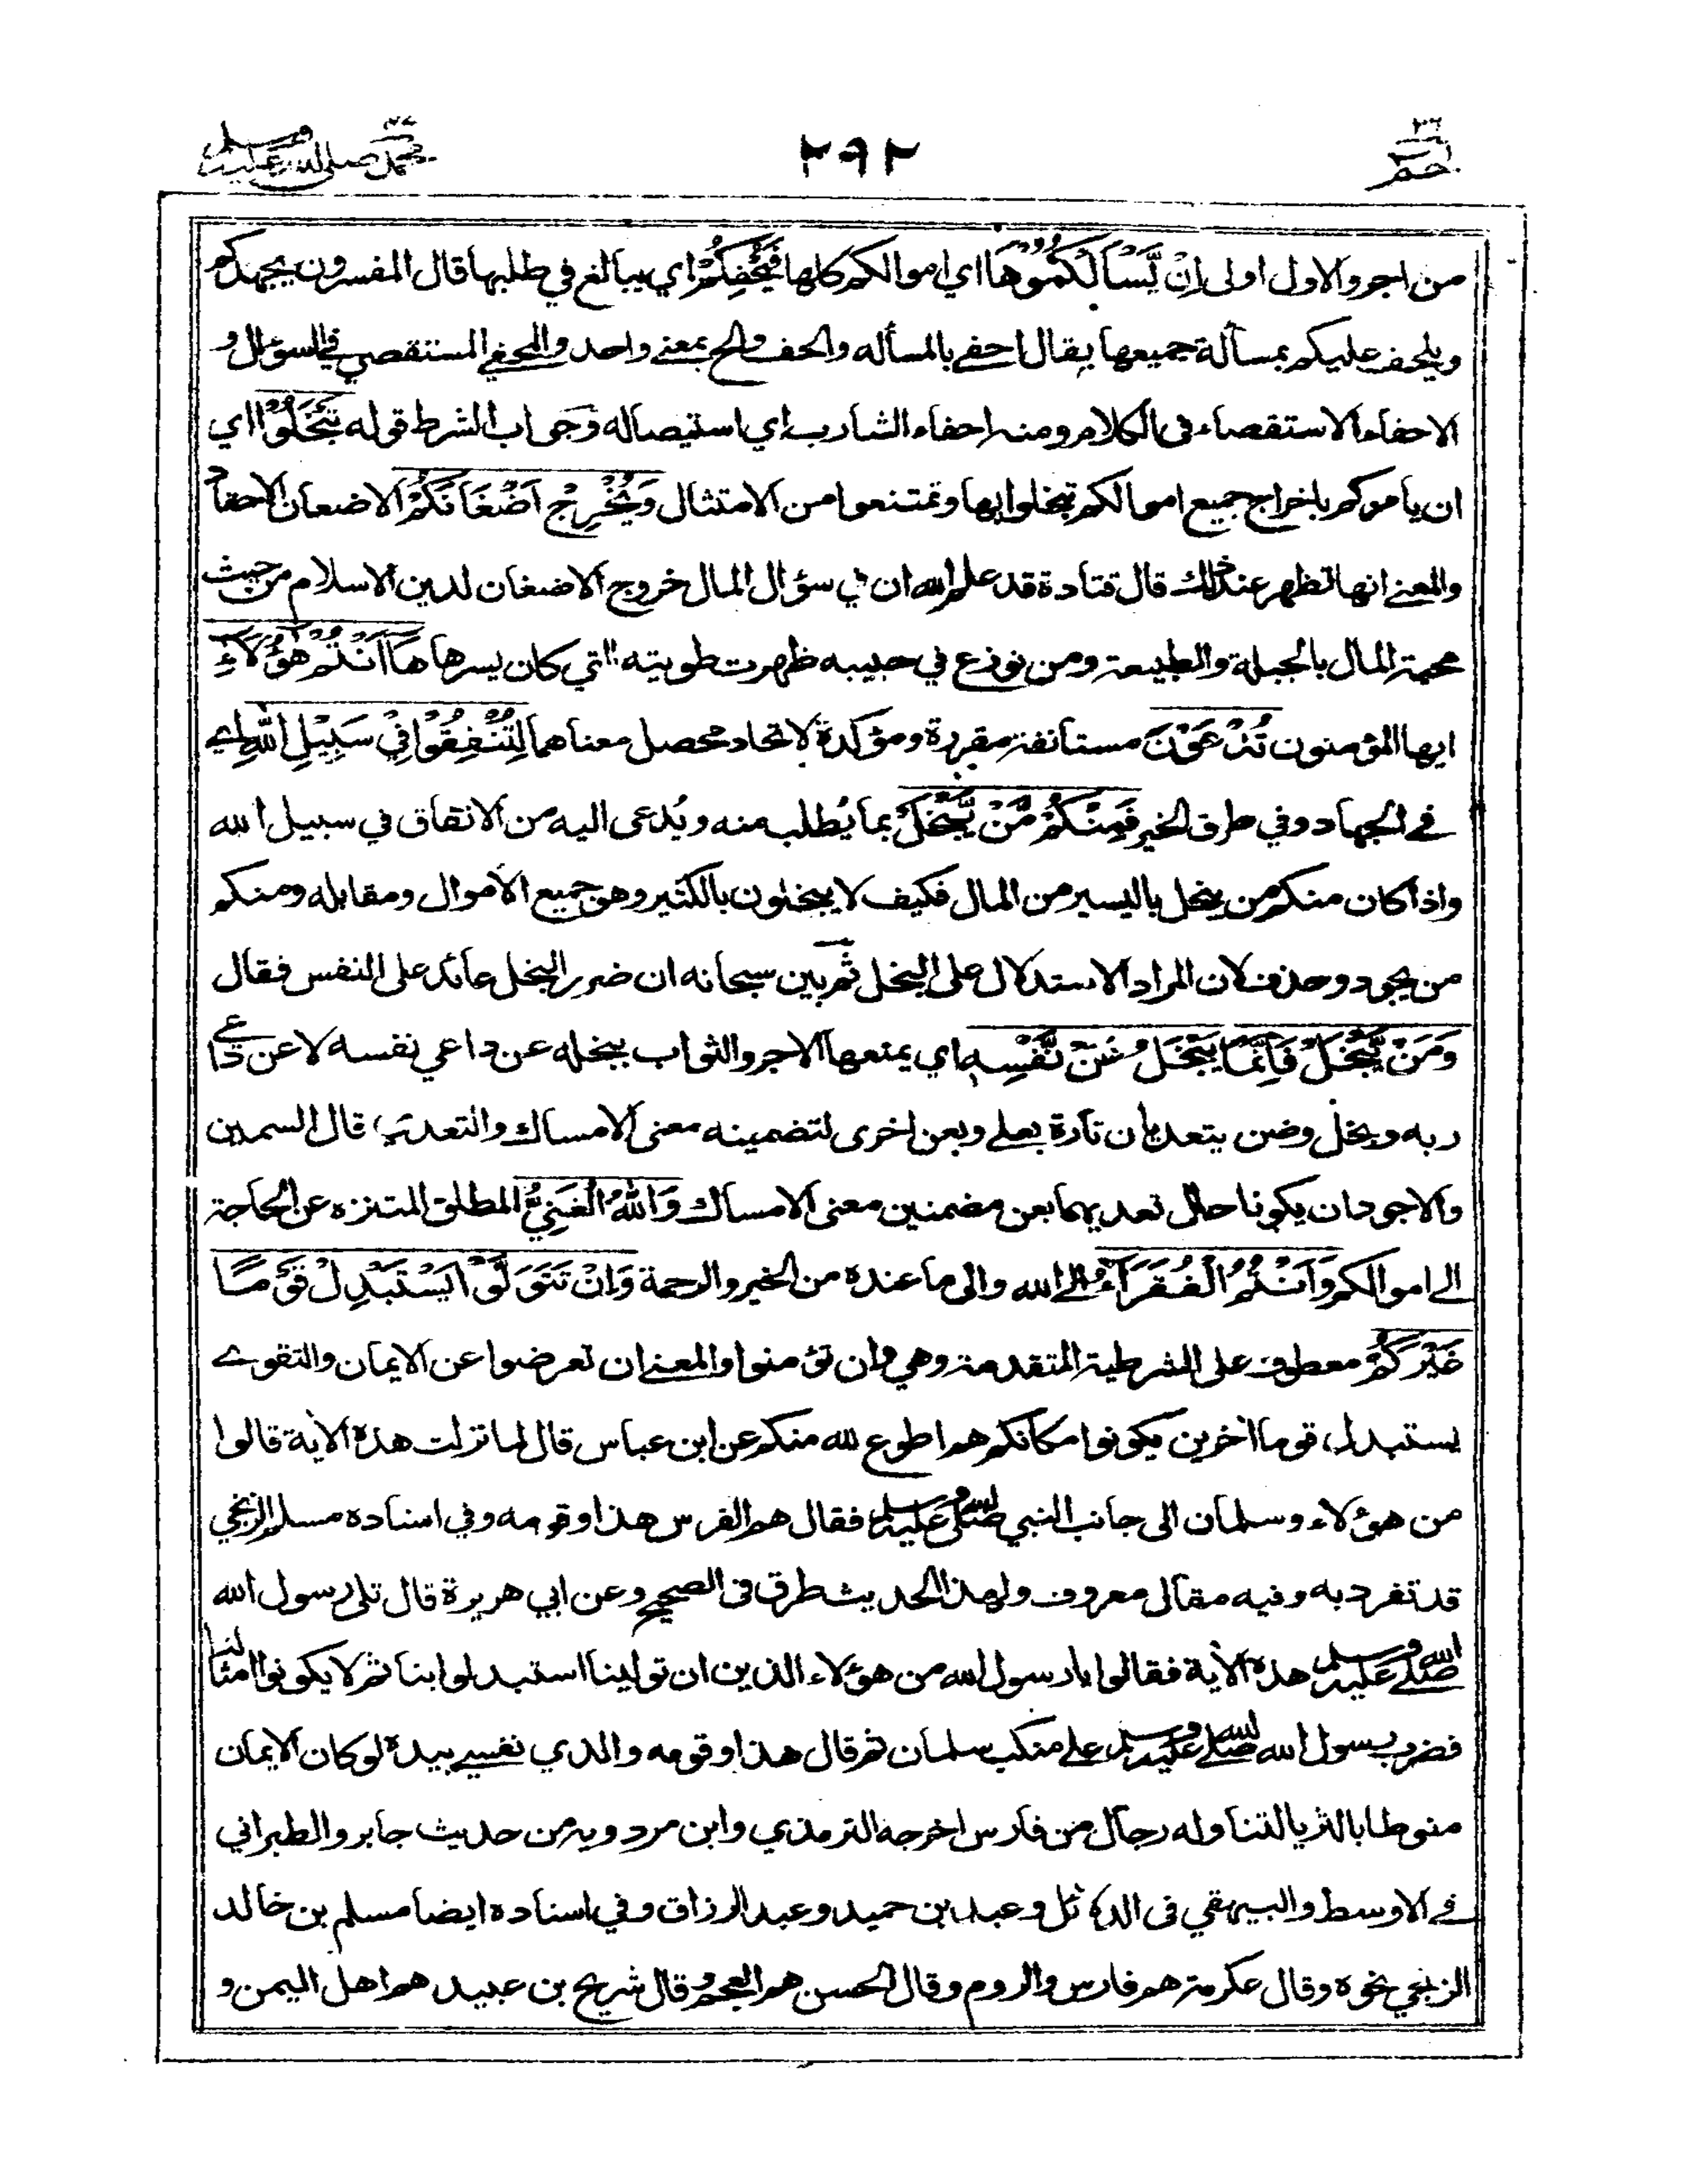 حم ٢٦
٢٩٢
محمد صلى الله عليه وسلم ٤٧
من اجر والاول اولى اِنْ يَّسْأَلْكُمُوْهَا اي اموالكم كلها فَيُحْفِكُمْ اي يبالغ في طلبها قال المفسرون يجهدكم
ويلحف عليكم بمسألة جميعها يقال احفى بالمسأله والحف والح بمعنى واحد والمحفي المستقصي في السؤال و
الاحفاء الاستقصاء في الكلام ومنه احفاء الشارب اي استيصاله وجواب الشرط قوله تَبْخَلُوْا اي
ان يأمركم باخراج جميع اموالكم تبخلوا بها وتمتنعوا من الامتثال وَيُخْرِجْ اَضْغَانَكُمْ الاضغان الاحقاد
والمعنى انها تظهر عند ذلك قال قتادة قد علم الله ان في سؤال المال خروج الاضغان لدين الاسلام من حيث
محبة المال بالجبلة والطبيعة ومن نوزع في حبيبه ظهرت طويته التي كان يسرها هَآ اَنْتُمْ هٰٓؤُلَآءِ
ايها المؤمنون تُدْعَوْنَ مستأنفة مقررة ومؤكدة لاتحاد محصل معناهما لِتُنْفِقُوْا فِيْ سَبِيْلِ اللّٰهِ اي
في الجهاد وفي طرق الخير فَمِنْكُمْ مَّنْ يَّبْخَلُ بما يُطلب منه ويُدعى اليه من الانفاق في سبيل الله
واذا كان منكم من يبخل باليسير من المال فكيف لا يبخلون بالكثير وهو جميع الأموال ومقابله ومنكم
من يجود وحذف لان المراد الاستدلال على البخل ثم بين سبحانه ان ضرر البخل عائد على النفس فقال
وَمَنْ يَّبْخَلْ فَاِنَّمَا يَبْخَلُ عَنْ نَّفْسِهٖ اي يمنعها الاجر والثواب ببخله عن داعي نفسه لا عن داعي
ربه وبخل وضن يتعديان تارة بعلى وبعن اخرى لتضمينه معنى الامساك والتعدي قال السمين
والاجود ان يكونا حال تعديهما بعن مضمنين معنى الامساك وَاللّٰهُ الْغَنِيُّ المطلق المتنزه عن الحاجة
الى اموالكم وَاَنْتُمُ الْفُقَرَآءُ الى الله والى ما عنده من الخير والرحمة وَاِنْ تَتَوَلَّوْا يَسْتَبْدِلْ قَوْمًا
غَيْرَكُمْ معطوف على الشرطية المتقدمة وهي وان تؤمنوا والمعنى ان تعرضوا عن الايمان والتقوى
يستبدل قوما آخرين يكونوا مكانكم هم اطوع لله منكم عن ابن عباس قال لما نزلت هذه الآية قالوا
من هؤلاء وسلمان الى جانب النبي صلى الله عليه وسلم فقال هم الفرس هذا وقومه وفي اسناده مسلم الزنجي
قد تفرد به وفيه مقال معروف ولهذا الحديث طرق في الصحيح وعن ابي هريرة قال تلى رسول الله
صلى الله عليه وسلم هذه الآية فقالوا يا رسول الله من هؤلاء الذين ان تولينا استبدلوا بنا ثم لا يكونوا امثالنا
فضرب رسول الله صلى الله عليه وسلم على منكب سلمان ثم قال هذا وقومه والذي نفسي بيده لو كان الايمان
منوطا بالثريا لتناوله رجال من فارس اخرجه الترمذي وابن مردويه من حديث جابر والطبراني
في الاوسط والبيهقي في الدلائل وعبد بن حميد وعبد الرزاق وفي اسناده ايضا مسلم بن خالد
الزنجي نحوه وقال عكرمة هم فارس والروم وقال الحسن هم العجم وقال شريح بن عبيد هم اهل اليمن و